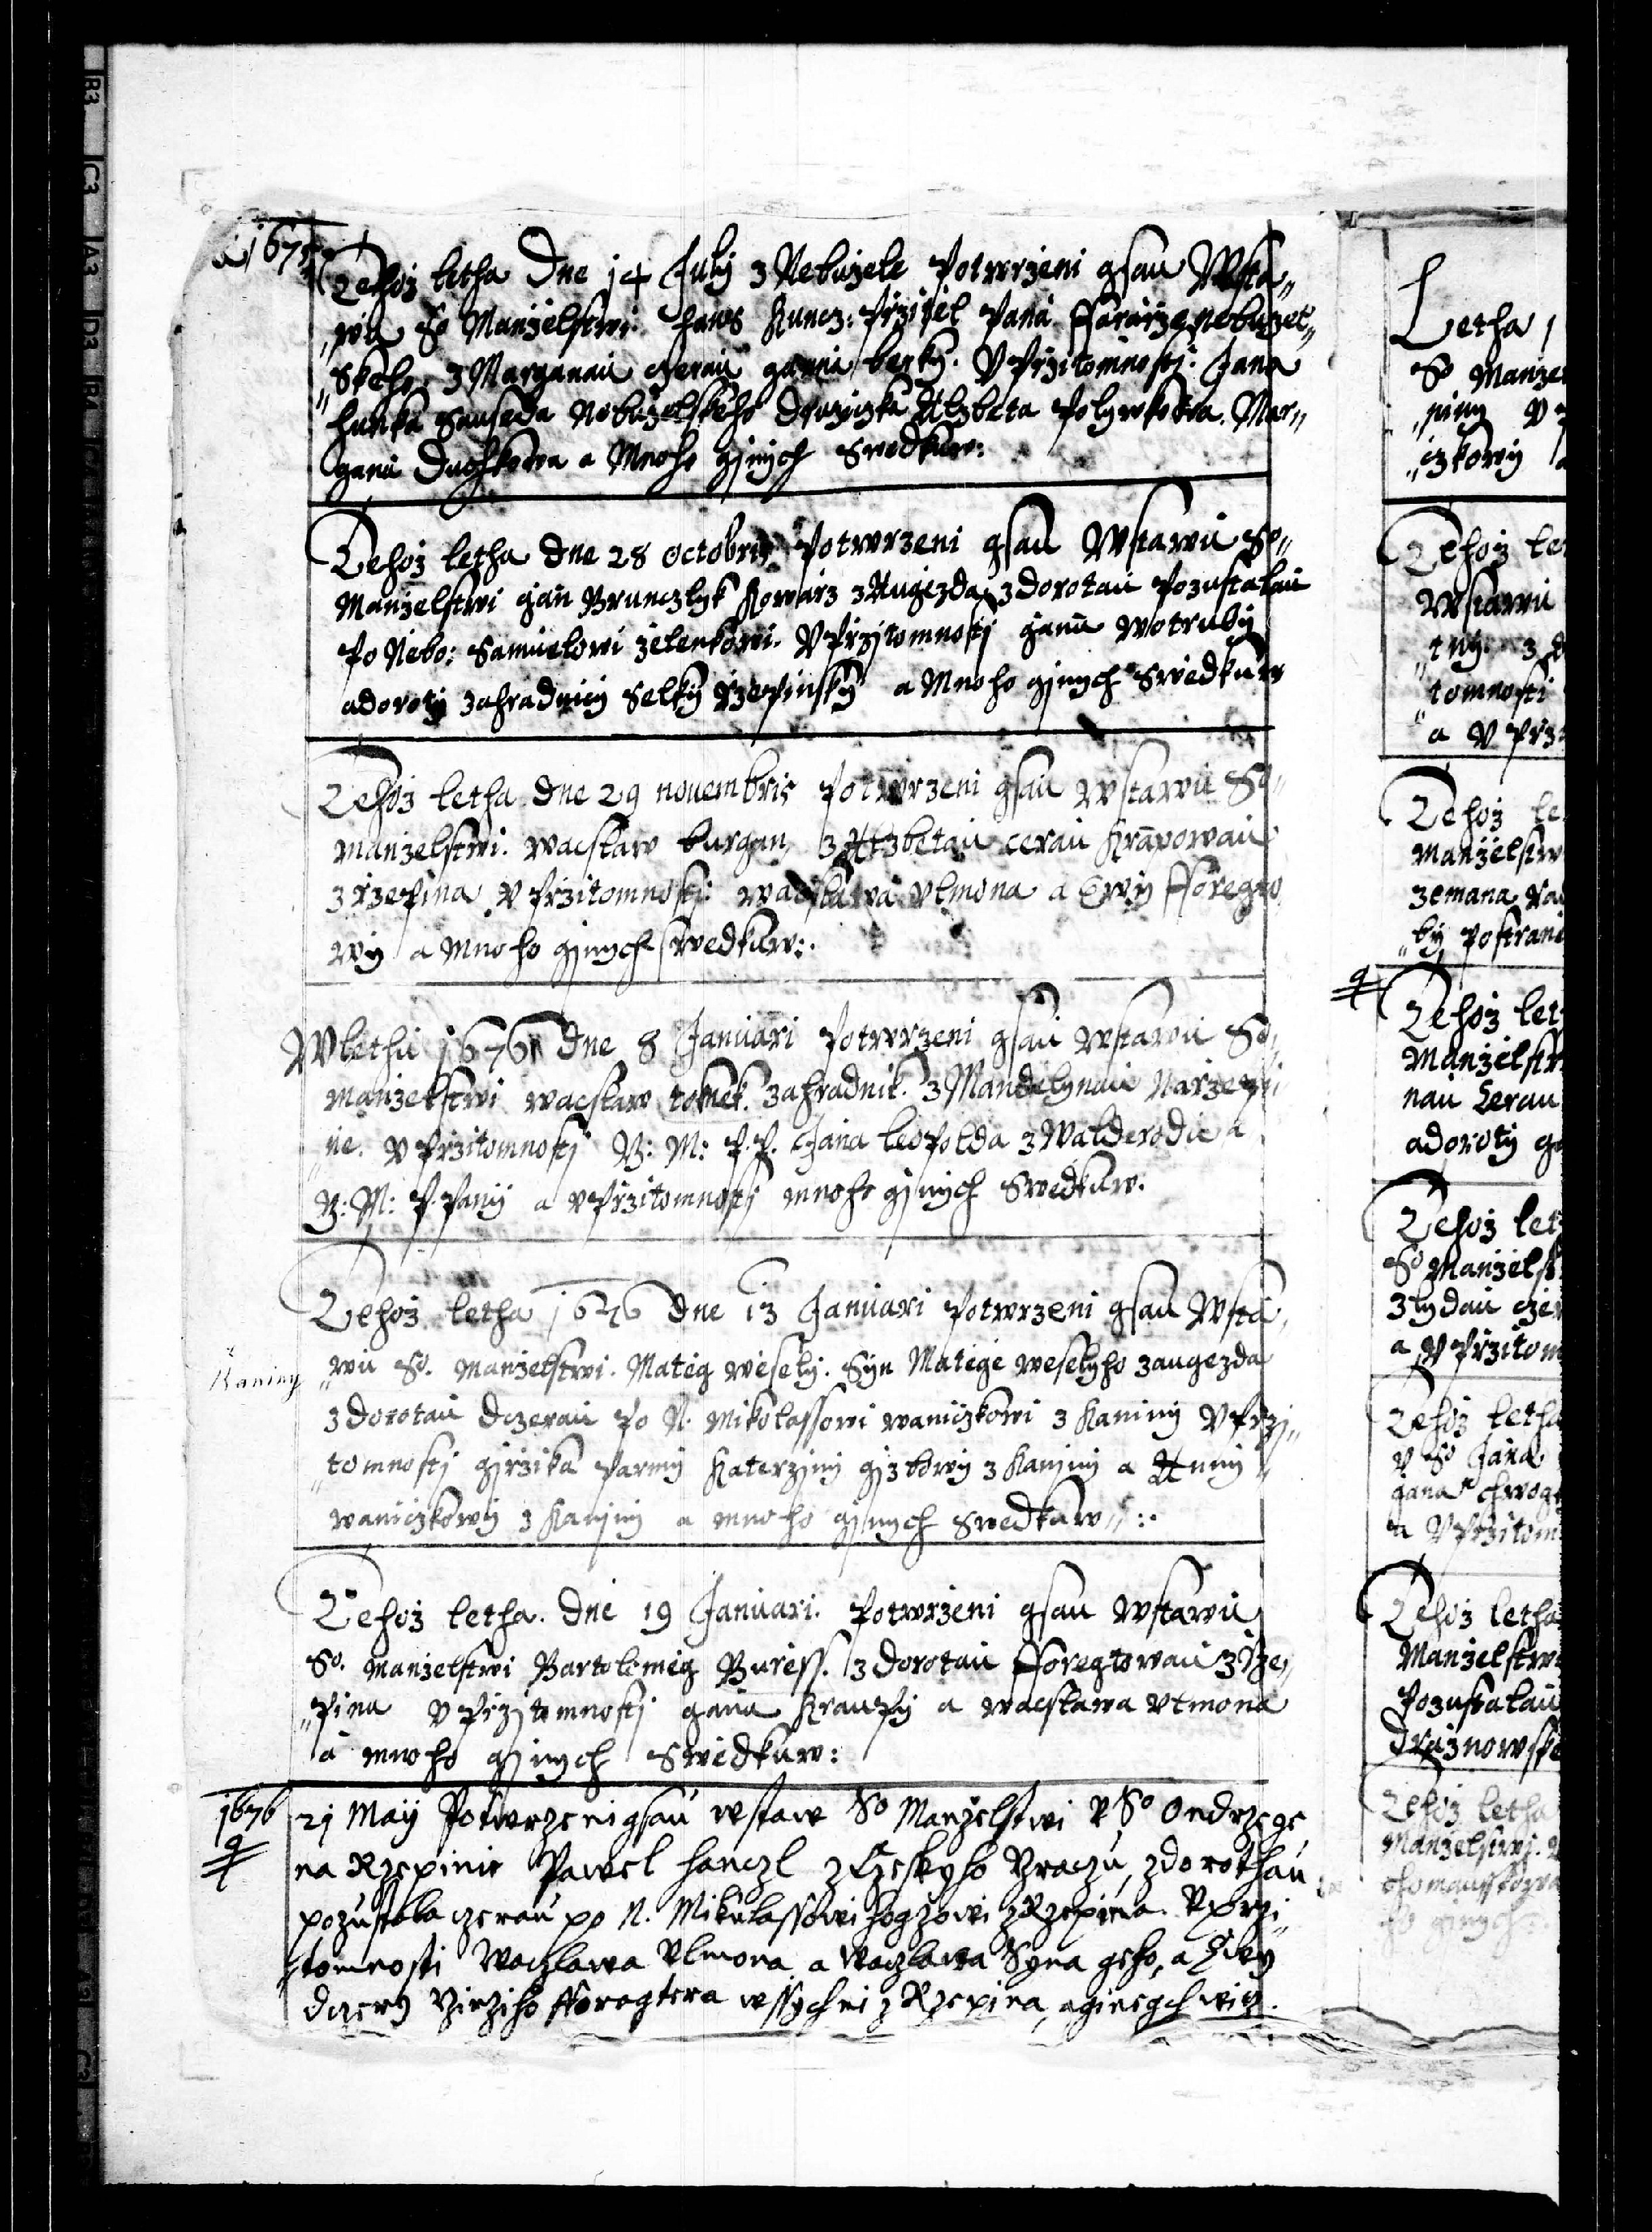 1675
Tehoż letha Dne 14 Julÿ z Nebużele Potwrzeni gsau Wsta„
„wu So Manżelstwi: hans Kuncz: Przitel Pana ffararze nebużel„
„skeho, z Marganau czerau gana berky. V Przitomnosti: Jana
hunka Sauseda Nebużelskeho Drużiczka Alzbeta Polywkowa. Mar„
gana Duchkowa a Mnoho gjnych Swedkuw:
Tehoż letha dne 28 octobris Potwrzeni gsau Wstawu So„
Manżelstwi gan Brunczlyk Kowarz z Augezda, z dorotau Pozustalau
Po Nebo: Samuelowi zelenkowi. V Przjtomnosti gana Wotruby
a doroty zahradnicy Selky Rzepinsky a Mnoho gjnych Swedkuw
Tehoż letha dne 29 nouembris Potwrzeni gsau Wstawu So„
manżelstwi. waclaw burgan, z Alzbetau cerau Krapowau
z rzepina V Przitomnosti: waclawa vlmona a Ewy fforegto
wy a mnoho gjnych swedkuw:.
W lethu 1676 dne 8 Januari Potwrzeni gsau wstawu So„
manżelstwi waclaw tomek. zahradnik. z Mandelynau Na rzepi
„ne. V Przitomnosti V: M: P. P. Jana leoPolda z Walderodu a
V: M: P. Pany a v Przitomnosti mnoho gjnych Swedkuw.
Tehoż letha 1676 dne 13 Januari Potwrzeni gsau Wsta„
z Kaniny
„wu So. manżelstwi. Mateg wesely. Syn Matege weselyho z augezda
z dorotau dczerau Po N. mikolassowi waniczkowi z Kaniny V Przj„
„tomnosti gjrzika Parmy Katerzjny gjzbowy z Kanjny a Anny
waniczkowy z Kanjny a mnoho gjnych Swedkuw„:.
Tehoż letha. dne 19 Januari. Potwrzeni gsau Wstawu
So. manżelstwi Bartolomeg Buress. z dorotau fforegtowau z rze„
„pina v Przjtomnosti gana KrauPy a waclawa vlmona
a mnoho gjnych Swedkuw:
1676
21 Maÿ Potwrzeni gsau wstaw So Manżelstwi v So Ondrzege
na Rzepinie Pawel hanczl z Czeskyho, z dorothau
pozustala czerau po N. Mikulassowi z Rzepina. V przi„
tomnosti Waczlawa Vlmona a Waczlawa Syna geho, a Ewy
dczery Girziho fforegtera wssychni z Rzepina, a ginegch wicz.
Letha 1
So manże
„niny v
„czkowy a
Tehoż le
Wstawu
„tny. z
„tomnosti
a V Prz
Tehoż le
manżelstw
zemana
„by Postrani
Tehoż let
Manżelstw
nau Cerau
a doroty g
Tehoż let
So Manżelst
z lydau cze
a V Przitom
Tehoż letha
v So Jana
gana
a V Przitom
Tehoż letha
Manżelstw
Pozustalau
Drażnowske
Tehoż letha
Manżelstwi.